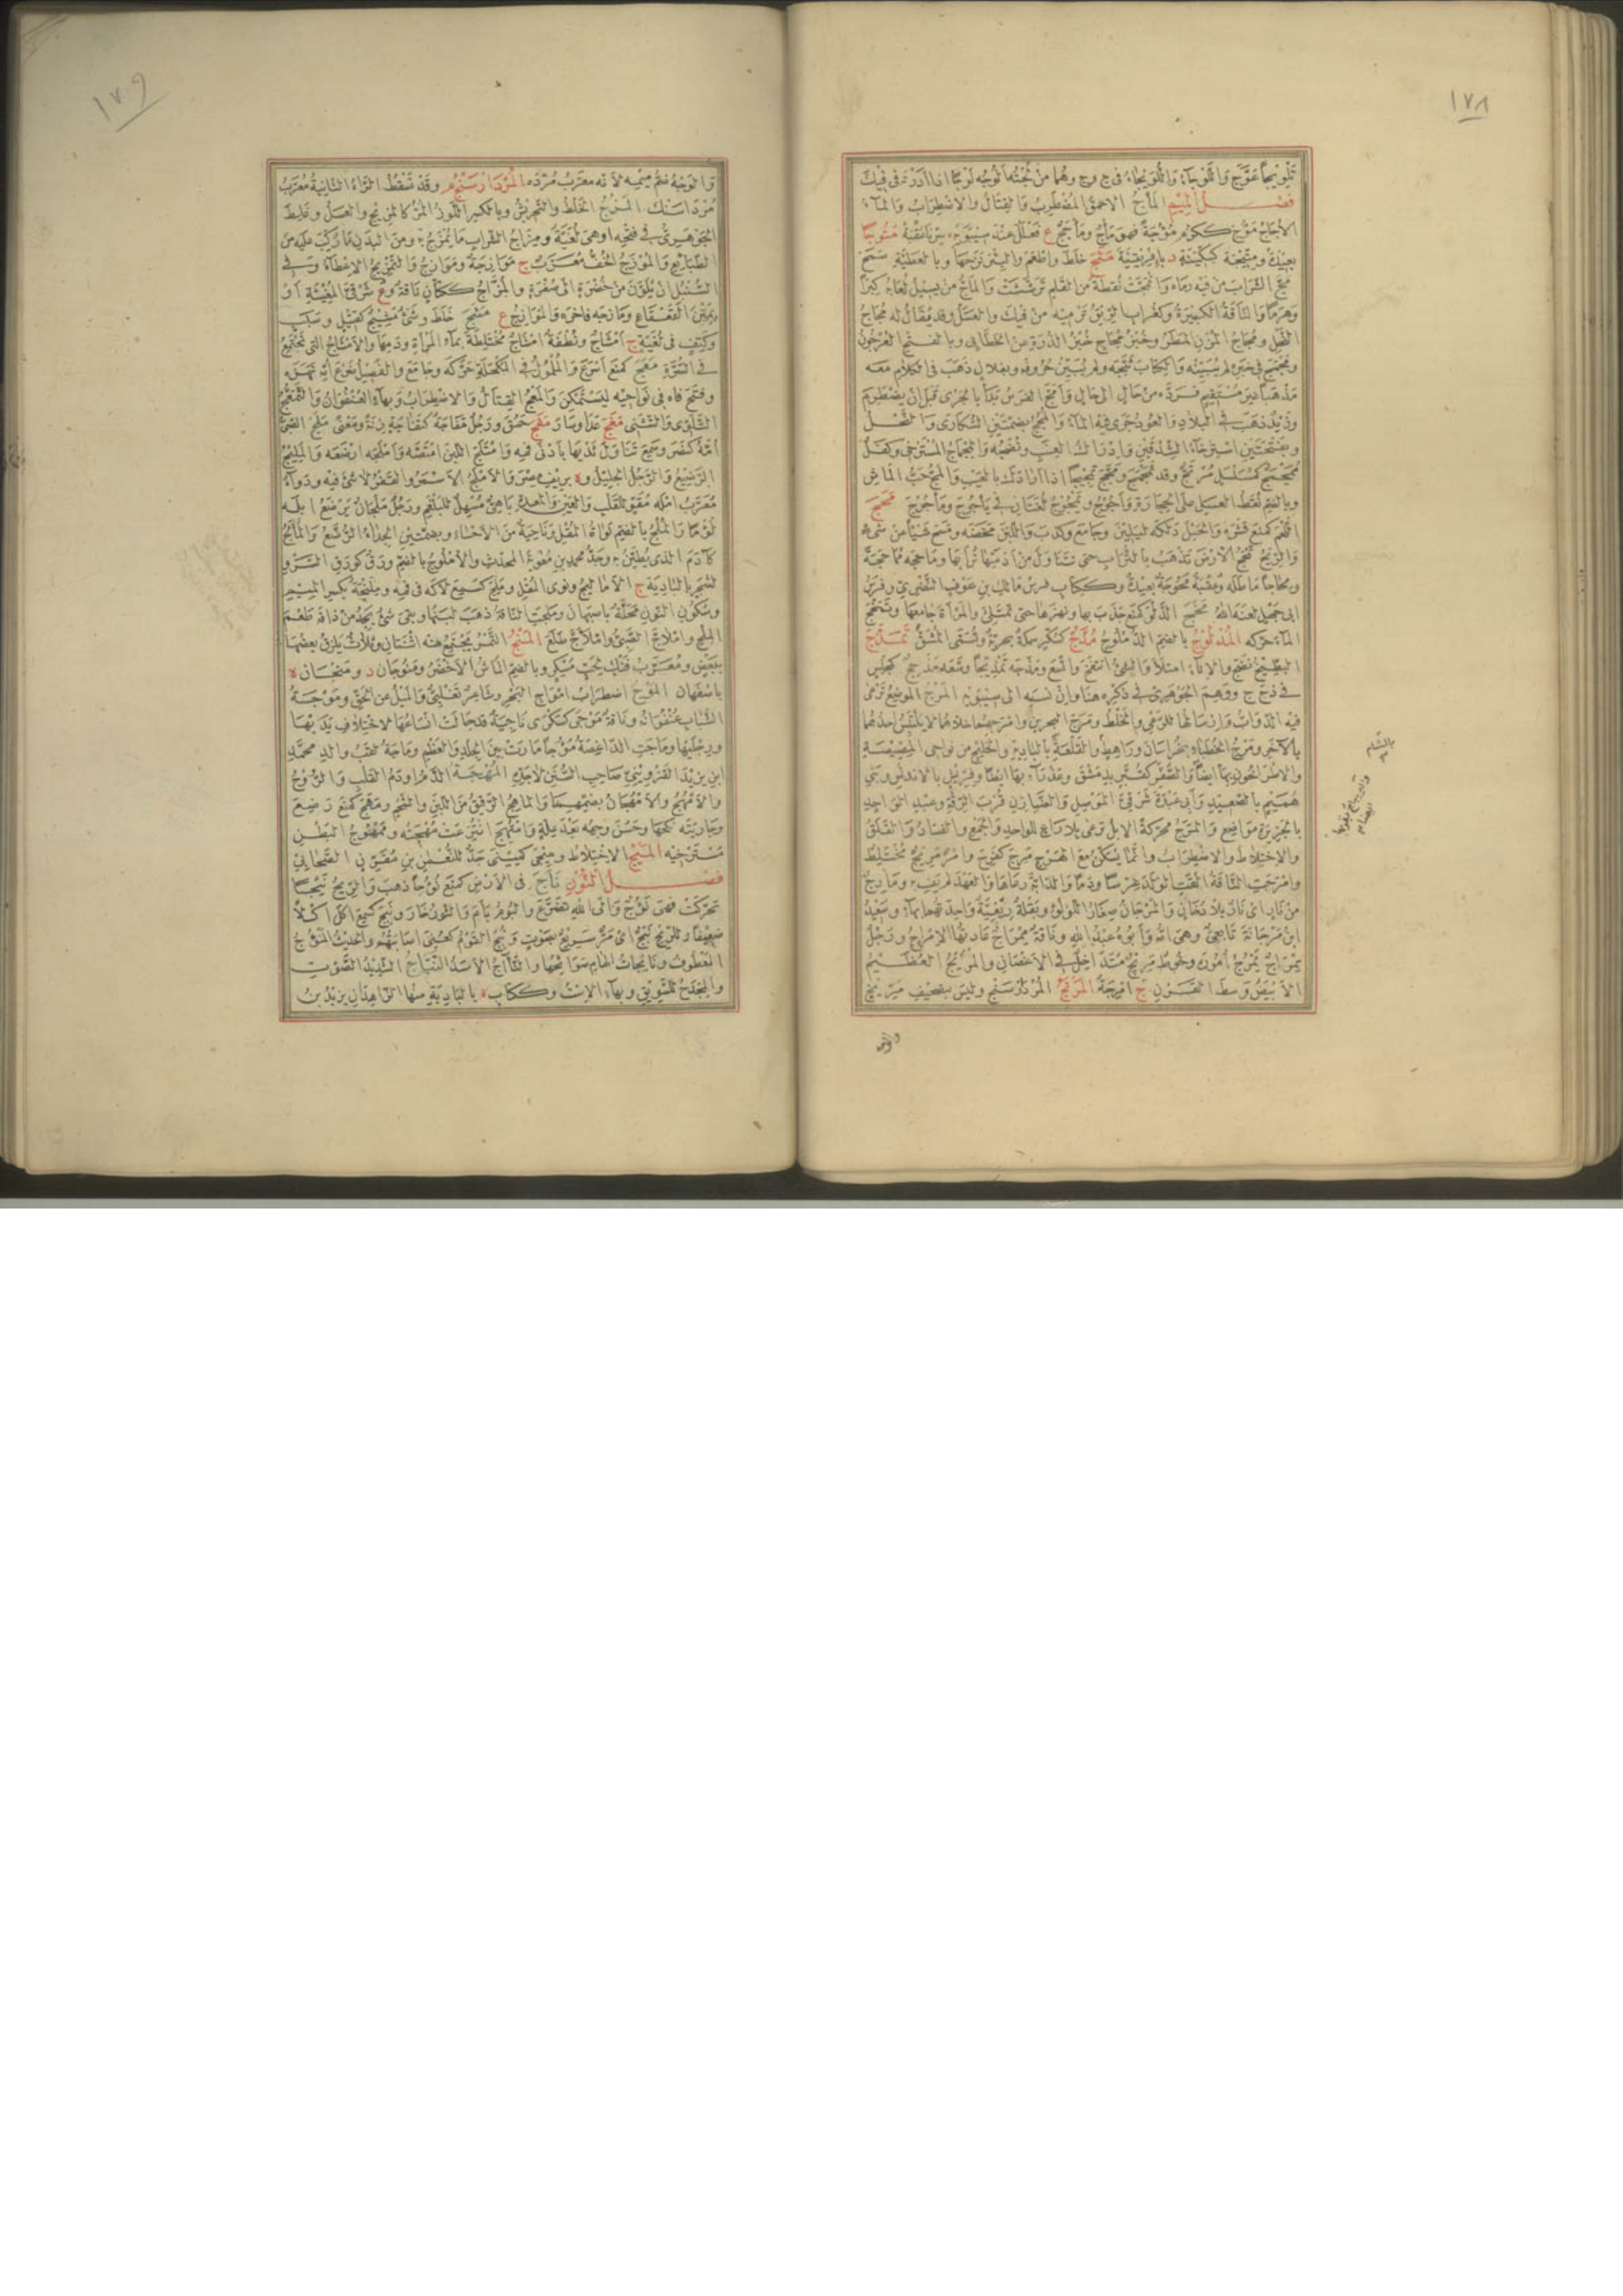 ١٧٨
تَلْوِيجاً عَوَّجَ وَاللَّوْجَاءُ وَاللُّوَيْجَاءُ فى ح و ج وهُمَا مِنْ لُجْتُهُ أَلُوجُه لَوْجًا اذا أدَرْتَهُ فى فِيكَ
فصْـــل المِيمِ المَأْجُ الأحمقُ المُضْطَرِبُ وَالقِتَالُ والاضْطِرَابُ وَالمَاءُ
الأُجَاجُ مَؤُجَ ككَرُمَ مُؤُوجَةً فهو مَأْجٌ ومَأْجَجُ ع فَعْلَلٌ عِنْدَ سِيبَوَيْهِ سِرْنَا عُقْبَةً مَتُوجًا
بعِيدَةً ومِتِّيجَة كسِكِّينَةٍ د بإفرِيقِيَّةَ مَثَجَ خلَطَ واطْعَمَ والبِئْرَ نَزَحَهَا وبالعَطِيَّةِ سَمَحَ
مَجَّ الشَّرَابَ مِنْ فِيه رَمَاهُ وَانْمَجَّتْ نُقْطَةٌ مِنَ القَلَمِ تَرَشَّشَتْ وَالمَاجُّ مَنْ يَسِيلُ لُعَابُهُ كِبَرًا
وَهَرَمًا وَالنَّاقَةُ الكَبِيرَةُ وكغُرَابٍ الرِّيقُ تَرْمِيهِ مِنْ فِيكَ والعَسَلُ وقد يُقَالُ لَه مُجَاجُ
النَّحْلِ ومُجَاجُ المُزْنِ المَطَرُ وخُبْزُ مُجَاجٍ خُبْزُ الذُّرَةِ عَنِ الخَطَّابِى وبالفتحِ العُرْجُونُ
ومَجْمَجَ فِى خبَرِهِ لم يُبَيِّنْهُ وَالكِتَابَ ثَبَّجَهُ ولم يُبَيِّنْ حُرُوفَهُ وبفلانٍ ذَهَبَ فى الكلامِ مَعَه
مَذْهَبًا غيرَ مُسْتَقِيمٍ فَرَدَّهُ من حَالٍ الى حالٍ وَأمَجَّ الفَرَسُ بَدَأَ بالجَرْىِ قَبْلَ أنْ يَضْطَرِمَ
وزَيْدٌ ذَهَبَ فى البِلادِ والعُودُ جَرَى فيهِ المَاءُ وَالمُجُجُ بضَمَّتَيْنِ السُّكَارَى وَالنَّحْلُ
وبفَتْحَتَيْنِ اسْتِرْخَاءُ الشِّدْقَيْنِ وَإدْرَاكُ العِنَبِ ونُضْجُهُ وَالمَجْمَاجُ المُسْتَرْخِى وكَفَلٌ
مُمَجْمَجٌ كمُسَلْسَلٍ مُرْتَجٌّ وقد تَمَجْمَجَ ومَجَّجَ تَمْجِيجًا اذا أرَادَكَ بالعَيْبِ وَالمَجُّ حَبُّ المَاشِ
وبالضمِّ نُقَطُ العَسَلِ على الحِجَارَةِ وَآجُوجُ ويَمْجُوجُ لُغَتَانِ فى يَأْجُوجَ ومَأْجُوجَ مَحَجَ
اللَّحْمَ كمَنَعَ قَشَرَهُ وَالحَبْلَ دَلَكَهُ ليَلِينَ وجَامَعَ وكَذَبَ وَاللَّبَنَ مَخَضَهُ ومَسَحَ شَيْأً مِنْ شَىْءٍ
وَالرِّيحُ تَمْحَجُ الأرْضَ تَذْهَبُ بالتُّرَابِ حتى تَتَنَاوَلَ مِنْ أدَمَتِهَا تُرَابَهَا ومَاحَجَهُ مُمَاحَجَةً
ومِحَاجًا مَاطَلَهُ وعُقْبَةٌ مَحُوجَةٌ بعِيدَةٌ وككِتَابٍ فرسُ مَالكِ بنِ عَوْفٍ النَّصْرِىِّ وفَرَسُ
ابى جَهْلٍ لعَنَهُ اللهُ مَخَجَ الدَّلْوَ كمَنَعَ جَذَبَ بهَا ونهَزَهَا حتى تَمْتَلِئَ والمَرْأةَ جَامَعَهَا وتَمَخَّجَ
المَاءَ حَرَّكَهُ المُذْلُوجُ بالضمِّ الدُّمْلُوجُ مُدَّجٌ كسُكَّرٍ سَمَكَةٌ بحرِيَّةٌ وتُسَمَّى المُشَقَّ تَمَذَّجَ
البِطِّيخُ نَضَجَ وَالإنَاءُ امتلأ وَالشىءُ انتفَخَ واتَّسَعَ ومَذَّجَهُ تَمْذِيجًا وسَّعَهُ مَذْحِجٌ كمجلِسٍ
فى ذ ح ج ووَهِمَ الجَوْهَرِىُّ فى ذِكْرِهِ هنا وإنْ نَسَبَهُ الى سِيبَوَيْهِ المَرْجُ المَوْضِعُ تَرْعَى
فيه الدَّوَابُّ وَإرْسَالُهَا للرَّعْىِ وَالخَلْطُ ومَرَجَ البَحْرَيْنِ وأمْرَجَهُمَا خلاهُمَا لا يَلْتَبِسُ احدُهُمَا
بالآخَرِ ومَرْجُ الخُطَبَاءِ بخُرَاسَانَ ورَاهِطٍ بالشَّامِ وَالقَلْعَةِ بالبَادِيَةِ والخَلِيجِ من نواحى المِصِّيصَةِ
والأطْرَاخُونَ بِهَا أيضًا وَالصُّفَّرِ كقُبَّرٍ بدِمَشْقَ وعَذْرَاءَ بها ايضًا وفِرِّيشَ بالاندلُسِ وبَنِى
هُمَيْمٍ بالصَّعِيدِ وَأبى عَبْدَةَ شَرْقِىَّ المَوْصِلِ وَالضَّيَازِنِ قُرْبَ الرَّقَّةِ وعبْدِ الوَاحِدِ
بالجَزِيرَةِ مَوَاضِعُ وَالمَرَجُ مُحَرَّكَةً الابِلُ تَرْعَى بلا رَاعٍ للواحِدِ وَالجَمْعِ والفَسَادُ وَالقَلَقُ
والاخْتِلاطُ والاضْطِرَابُ وانَّمَا يُسَكَّنُ معَ الهَرْجِ مَرِجَ كفَرِحَ وَأمْرٌ مَرِيجٌ مُخْتَلِطٌ
وَأمْرَجَتِ النَّاقَةُ القَتِ الوَلَدَ غِرْسًا ودَمًا وَالدَّابَّةَ رَعَاهَا وَالعَهْدَ لم يَفِ بهِ ومَارِجٌ
مِنْ نَارٍ أىْ نَارٌ بلا دُخَانٍ وَالمَرْجَانُ صِغَارُ اللُّؤْلُؤِ وبَقْلَةٌ رِبْعِيَّةٌ وَاحِدَتُهَا بهَاءٍ وسَعِيدُ
ابنُ مَرْجَانَةَ تَابِعِىٌّ وهى امُّهُ وَأَبُوهُ عَبْدُ اللهِ ونَاقَةٌ مِمْرَاجٌ عَادَتُهَا الإمْرَاجُ ورَجُلٌ
مِمْرَاجٌ يَمْرُجُ أمُورَهُ وخُوطٌ مَرِيجٌ مُتَدَاخِلٌ فى الأغْصَانِ والمَرِيجُ العُظَيْمُ
الأبْيَضُ وَسَطَ القَرْنِ ج أمْرِجَةٌ المَرْتَجُ المُرْدَارْسَنْجُ وليسَ بتصْحِيفِ مَرِّيخٍ
والوجه
١٧٩
وَالوَجْهُ ضَمُّ مِيمِهِ لانّه معَرَّبُ مُرْدَه المُرْدَارَسَنْجُ م وقَدْ تُسْقَطُ الرَّاءُ الثَّانِيَةُ مُعَرَّبُ
مُرْدَاسَنْك المَزْجُ الخَلْطُ والتَّحْرِيشُ وبالكسرِ اللَّوْزُ المُرُّ كالمَزِيجِ والعَسَلُ وغَلِطَ
الجَوْهَرِىُّ فى فتْحِهِ أوهىَ لُغَيَّةٌ ومِزَاجُ الشَّرَابِ مَا يُمْزَجُ بهِ ومِنَ البَدَنِ مَا رُكِّبَ عَلَيْهِ مِنَ
الطَّبَائِعِ وَالمَوْزَجُ الخُفُّ مُعَرَّبٌ ج مَوَازِجَةٌ ومَوَازِجُ وَالتَّمْزِيجُ الإعْطَاءُ وَفى
السُّنْبُلِ أنْ يُلَوِّنَ مِنْ خُضْرَةٍ الى صُفْرَةٍ والمَزَّاجُ ككَتَّانٍ نَاقَةٌ وع شَرْقِىَّ المُغِيثَةِ أوْ
يَمِينَ القَعْقَاعِ ومَازَجَهُ فَاخَرَهُ وَالمَوَازِجُ ع مَشَجَ خَلَطَ وشَىْءٌ مَشِيجٌ كقَتِيلٍ وسَبَبٍ
وكَتِفٍ فى لُغَيَّةٍ ج أمْشَاجٌ ونُطْفَةٌ أمْشَاجٌ مُخْتَلِطَةٌ بمَاءِ المَرْأةِ ودَمِهَا والأمْشَاجُ التى تَجْتَمِعُ
فى السُّرَّةِ مَعَجَ كمَنَعَ أسْرَعَ وَالمُلْمُولَ فى المُكْحُلَةِ حَرَّكَهُ وجَامَعَ والفَصِيلُ ضَرْعَ أُمِّهِ لَهَزَهُ
وفَتَحَ فاهُ فى نَوَاحِيهِ ليَسْتَمْكِنَ وَالمَعْجُ القِتَالُ والاضْطِرَابُ وَبهاءٍ العُنْفُوَانُ وَالتَّمَعُّجُ
التَّلَوِّى وَالتَّثَنِّى مَغَجَ عَدَا وسَارَ مَفَجَ حَمُقَ ورَجُلٌ مَفَّاجَةٌ كفَفَّاجَةٍ زِنَةً ومَعْنًى مَلَجَ الصَّبِىُّ
أُمَّهُ كنَصَرَ وسَمِعَ تَنَاوَلَ ثَدْيَهَا بأدْنَى فَمِهِ وَامْتَلَجَ اللَّبَنَ امْتَصَّهُ وَأمْلَجَهُ ارْضَعَهُ وَالمَلِيجُ
الرَّضِيعُ وَالرَّجُلُ الجَلِيلُ وة برِيفِ مِصْرَ وَالأمْلَجُ الأسْمَرُ والقَفْرُ لا شَىْءَ فيه ودَوَاءٌ
مُعَرَّبُ أمْلَه مُقَوٍّ للقَلْبِ وَالعَيْنِ وَالمَعِدَةِ بَاهِىٌّ مُسْهِلٌ للبَلْغَمِ ورَجُلٌ مَلْجَانُ يَرْضَعُ ابِلَهُ
لُؤْمًا وَالمُلْجُ بالضمِّ نَوَاةُ المُقْلِ ونَاحِيَةٌ مِنَ الأحْسَاءِ وبضَمَّتَيْنِ الجِدَاءُ الرُّضَّعُ وَالمَالَجُ
كآدَمَ الذى يُطَيَّنُ بهِ وجَدُّ محمدِ بنِ مُعَوِيَةَ المحدِّثِ والأُمْلُوجُ بالضمِّ وَرَقٌ كوَرَقِ السَّرْوِ
لشَجَرٍ بالبَادِيَةِ ج الأمَالِيجُ ونَوَى المُقْلِ ومَلِجَ كسَمِعَ لاكَهُ فى فَمِهِ ومِلَنْجَةُ بكسرِ المِيمِ
وسُكُونِ النُّونِ مَحَلَّةٌ باصبَهَانَ ومَلَجَتِ النَّاقَةُ ذهَبَ لبَنُهَا وبقِىَ شَىْءٌ يَجِدُ مَنْ ذاقَهُ طَعْمَ
المِلْحِ وامْلاجَّ الصَّبِىُّ وامْلأجَّ طَلَعَ المَنْجُ التَّمْرُ يَجْتَمِعُ مِنْهُ اثْنَتَانِ وثَلاثٌ يَلْزَقُ بعضُهَا
ببَعْضٍ ومُعَرَّبُ مَنْك لحَبٍّ مُسْكِرٍ وبالضمِّ المَاشُ الأخْضَرُ ومَنُوجَانُ د ومَنْجَانُ ة
باصْفَهَانَ المَوْجُ اضْطِرَابُ أمْوَاجِ البَحْرِ وشَاعِرٌ تَغْلَبِىٌّ وَالمَيْلُ عَنِ الحَقِّ ومَوْجَةُ
الشَّبَابِ عُنْفُوَانُهُ ونَاقَةٌ مَوْجَى كسَكْرَى نَاجِيَةٌ قد جَالَتْ أنْسَاعُهَا لاخْتِلافِ يَدَيْهَا
ورِجْلَيْهَا ومَاجَتِ الدَّاغِصَةُ مُؤُوجًا مَارَتْ بينَ الجِلْدِ وَالعَظْمِ ومَاجَهْ لقَبُ والدِ محمَّدِ
ابنِ يزيدَ القَزْوِينِىِّ صَاحِبِ السُّنَنِ لاجَدِّهِ المُهْجَةُ الدَّمُ أودَمُ القَلْبِ وَالرُّوحُ
والأُمْهُجُ والأُمْهُجَانُ بضَمِّهِمَا وَالمَاهِجُ الرَّقِيقُ مِنَ اللَّبَنِ والشَّحْمِ ومَهَجَ كمَنَعَ رَضِعَ
وجَارِيَتَهُ نَكَحَهَا وحَسُنَ وَجْهُهُ بَعْدَ عِلَّةٍ وَامْتُهِجَ انْتُزِعَتْ مُهْجَتُهُ ومَمْهُوجُ البَطْنِ
مُسْتَرْخِيهِ المَيْجُ الاخْتِلاطُ ومِيجَى كمِينَى جَدٌّ للنُّعْمَنِ بنِ مُقَرِّنٍ الصَّحَابِىِّ
فصْـــل النُّونِ نَأَجَ فى الأرْضِ كمَنَعَ نُؤُوجًا ذَهَبَ وَالرِّيحُ نَئِيجًا
تَحَرَّكَتْ فهىَ نَؤُوجٌ وَالى اللهِ تَضَرَّعَ وَالبُومُ نَأمَ وَالثَّوْرُ خَارَ ونَئِجَ كسَمِعَ اكَلَ أكْلاً
ضَعِيفًا وللرِّيحِ نَئِيجٌ أىْ مَرٌّ سَرِيعٌ بصَوْتٍ ونُئِجَ القَوْمُ كعُنِىَ أصَابَتْهُمْ والحَدِيثُ المَنْؤُوجُ
المَعْطُوفُ ونَائِجَاتُ الهَامِ صَوَائِحُهَا والنَّأَّجُ الأسَدُ النَّبَّاجُ الشَّدِيدُ الصَّوْتِ
والمِجْدَحُ للسَّوِيقِ وبهاءٍ الاسْتُ وككِتَابٍ ة بالبَادِيَةِ منها الزَّاهِدَانِ يَزِيدُ بنُ